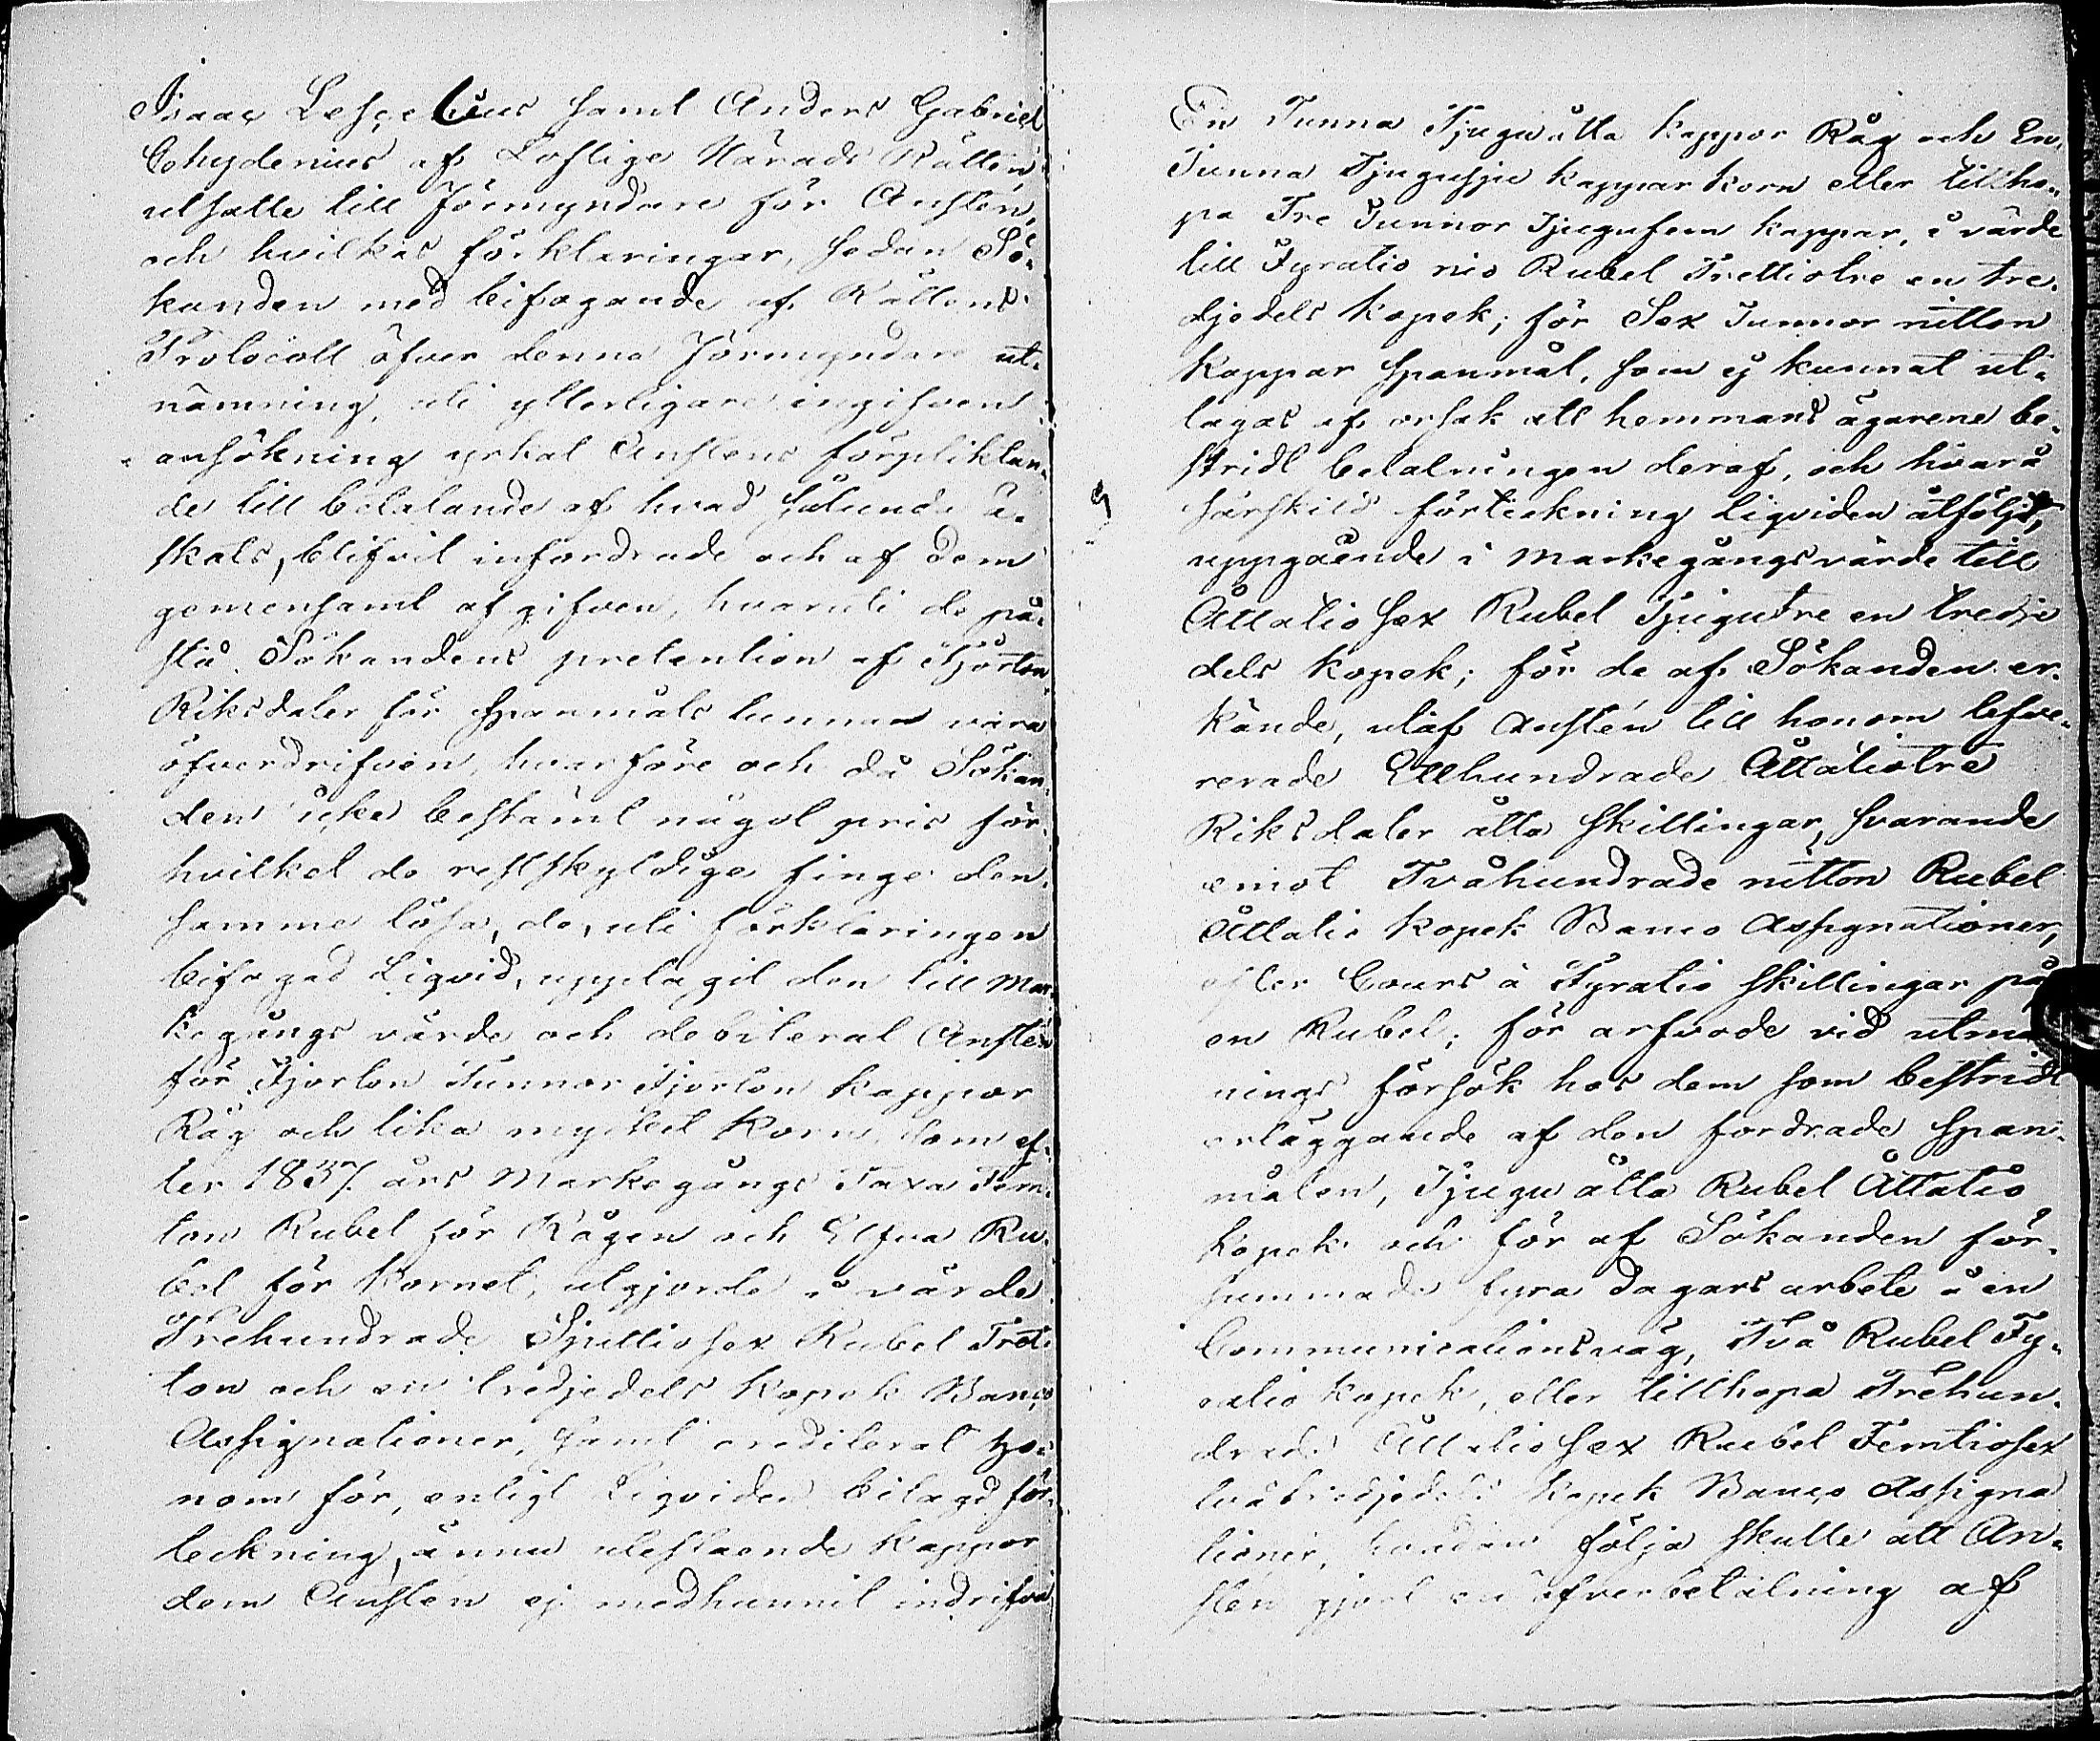 Isaac Lescelius samt Anders Gabriel
Chydenius af Loflige Härads Rätten
utsatte till Förmyndare för Anstén,
och hvilkas förklaringar, sedan Sö-
kanden med bifogande af Rättens
Protocoll öfver denna Förmyndare ut-
nämning, uti ytterligare ingifven
ansökning yrkatAnsténs förpliktan-
de till betalande af hvad sålunda ä-
skats, blifvit infordrade och af dem
gemensamt afgifven, hvaruti de på-
stå Sökandens pretention af Fjorton
Riksdaler för Spanmåls tunnan vara
öfverdrifven, hvarföre och då Sökan-
den icke bestämt något pris för
hvilket de restskyldige finge den-
samma lösa, de, uti förklaringen
bifogad Liqvid, upptagit den till Mar-
kegångs värde och debiterat Anstén
för Fjorton Tunnor Fjorton kappor
Råg och lika mycket Korn, som ef-
ter 1837 års Markegångs Taxa Fem-
ton Rubel för Rågen och Elfva Ru-
bel för Kornet, utgjorde i värde
Trehundrade Sjuttiosex Rubel Tret-
ton och en tredjedels Kopek Banco
Assignationer, samt crediterat ho-
nom för, enligt Liqviden bilagd för-
teckning, ännu utestående kappor
dem Anstén ej medhunnit indrifva
En Tunna Tjuguåtta kappor Råg och En
Tunna Tjugusju kappar korn eller tillho-
pa Tre Tunnor Tjugufem kappar, i värde
till Fyratio nio Rubel Trettiotre en tre-
djedels kopek; för Sex Tunnor nitton
kappar Spanmål, som ej kunnat ut-
tagas af orsak att hemmans ägarene be-
stridt betalningen deraf, och hvarå
särskild förteckning liqviden åtföljt,
uppgående i markegångsvärde till
Åttatiosex Rubel Tjugutre en tredje
dels Kopek; för de af Sökanden er-
kände, utaf Anstén till honom lefve-
rerade Etthundrade Åttatiotre
Riksdaler åtta Skillingar, svarande
emot Tvåhundrade nitton Rubel
Åttatio Kopek Banco Assignationer,
efter Cours à Fyratio Skillingar på
en Rubel; för arfvode vid utmä
nings försök hos dem som bestridt
erläggande af den fordrade Span-
målen, Tjuguåtta Rubel Åttatio
Kopek och för af Sökanden för-
summade fyra dagars arbete å en
Communicationsväg, Två Rubel Fy-
ratio Kopek, eller tillhopa Trehun-
drade Åttatiosex Rubel Femtiosex
två tredjedels Kopek Banco Assigna
tioner, hvaraf följa skulle att An-
stén gjort en öfverbetalning af